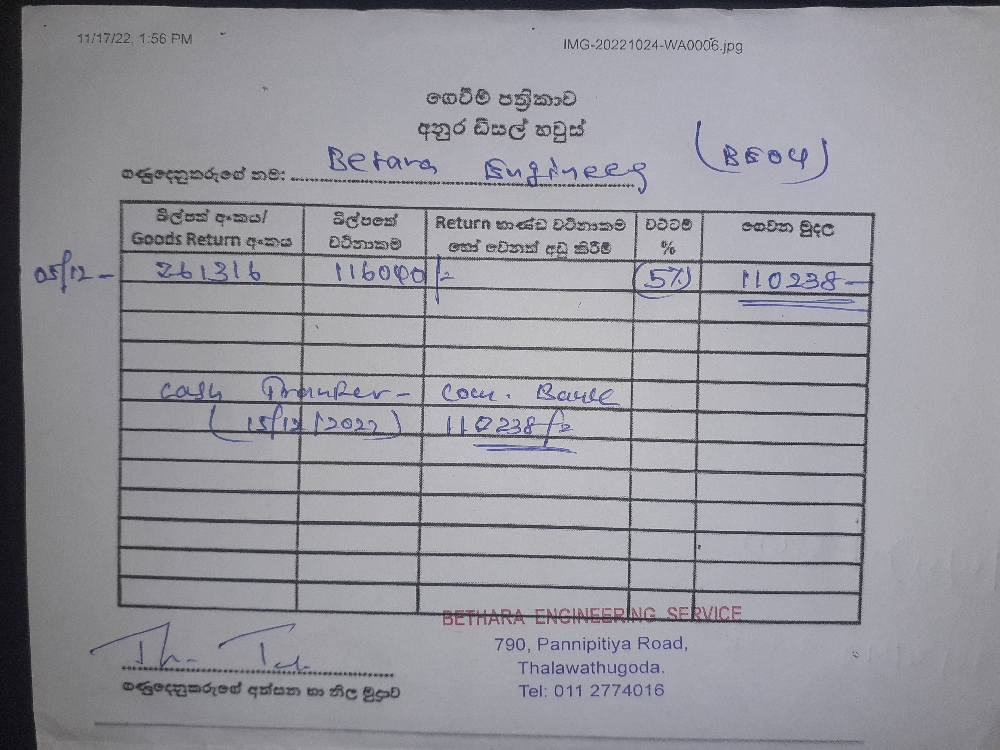 11/17/22, 1:56 PM
IMG-20221024-WA0006.jpg
ගෙවීම් පත්‍රිකාව
අනුර ඩීසල් හවුස්
(BE04)
ගණුදෙනුකරුගේ නම: Betara Engineeg
බිල්පත් අංකය/ Goods Return අංකය
බිල්පතේ වටිනාකම
Return භාණ්ඩ වටිනාකම හෝ වෙනත් අඩු කිරීම්
වට්ටම් %
ගෙවන මුදල
05/12 - 261316 116040/= (5%) 110238-
Cash Transfer - Com. Bank
(15/12/2022) 110238/=
BETHARA ENGINEERING SERVICE
790, Pannipitiya Road,
Thalawathugoda.
Tel: 011 2774016
ගණුදෙනුකරුගේ අත්සන හා නිල මුද්‍රාව